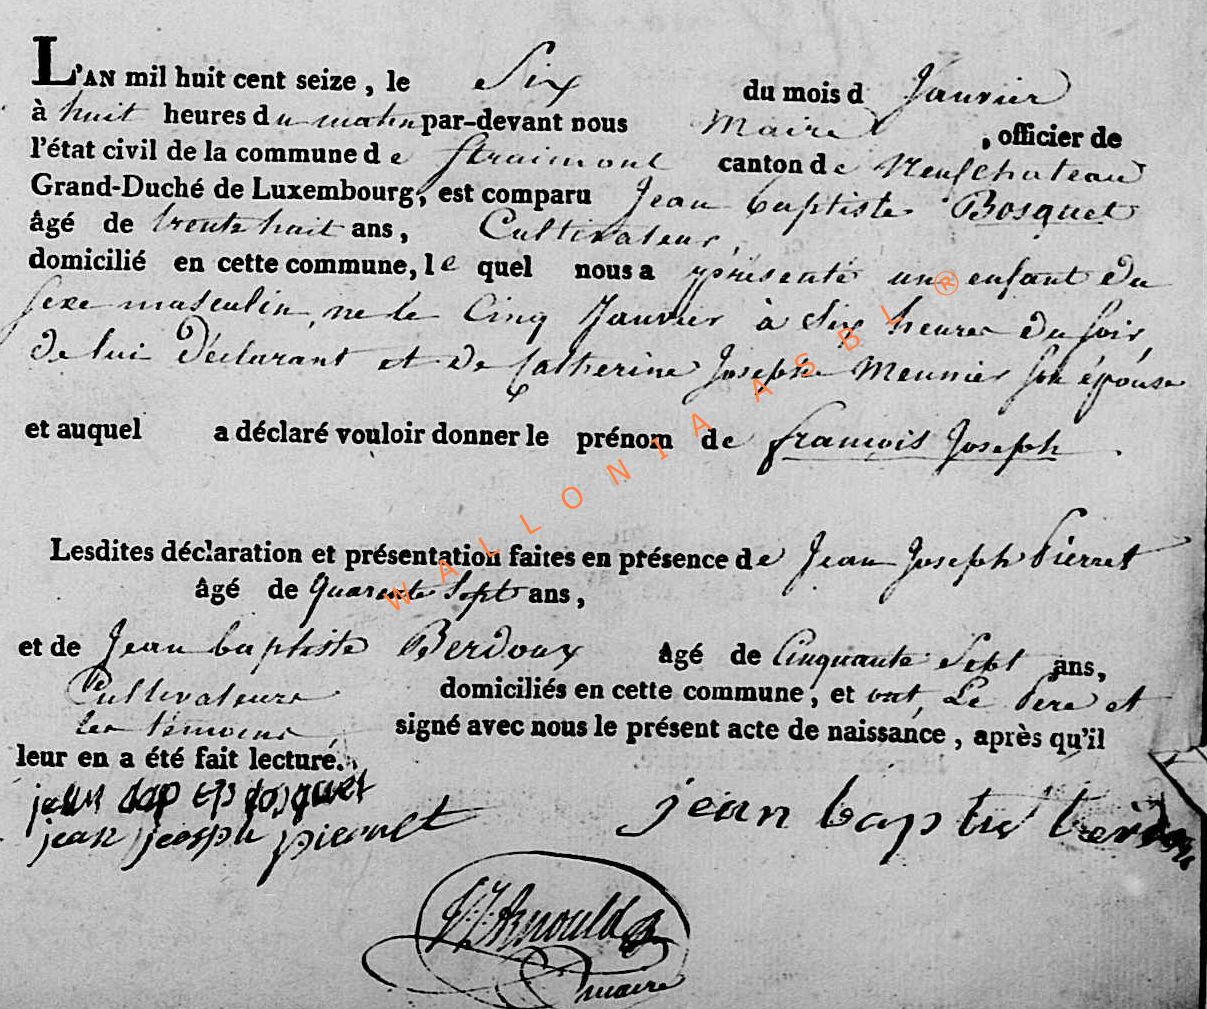 L'AN mil huit cent seize, le Six du mois d Janvier
à huit heures du matin par-devant nous Maire, officier de
l'état civil de la commune de Straimont canton de Neufchateau
Grand-Duché de Luxembourg, est comparu Jean baptiste Bosquet
âgé de trente huit ans, Cultivateur,
domicilié en cette commune, le quel nous a présenté un enfant du
sexe masculin, né le Cinq Janvier à Six heures du soir,
de lui Déclarant et de Catherine Joseph Meunier son épouse
et auquel a déclaré vouloir donner le prénom de francois Joseph.
Lesdites déclaration et présentation faites en présence de Jean Joseph Pierret
âgé de Quarente Sept ans,
et de Jean baptiste Berdoux âgé de Cinquante Sept ans,
Cultivateurs domiciliés en cette commune, et ont, Le Pere et
les témoins signé avec nous le présent acte de naissance, après qu'il
leur en a été fait lecture.
jean bap bosquet
jean joseph pierret
jean baptist berdoux
Arnould
maire
WALLONIA ASBL ®